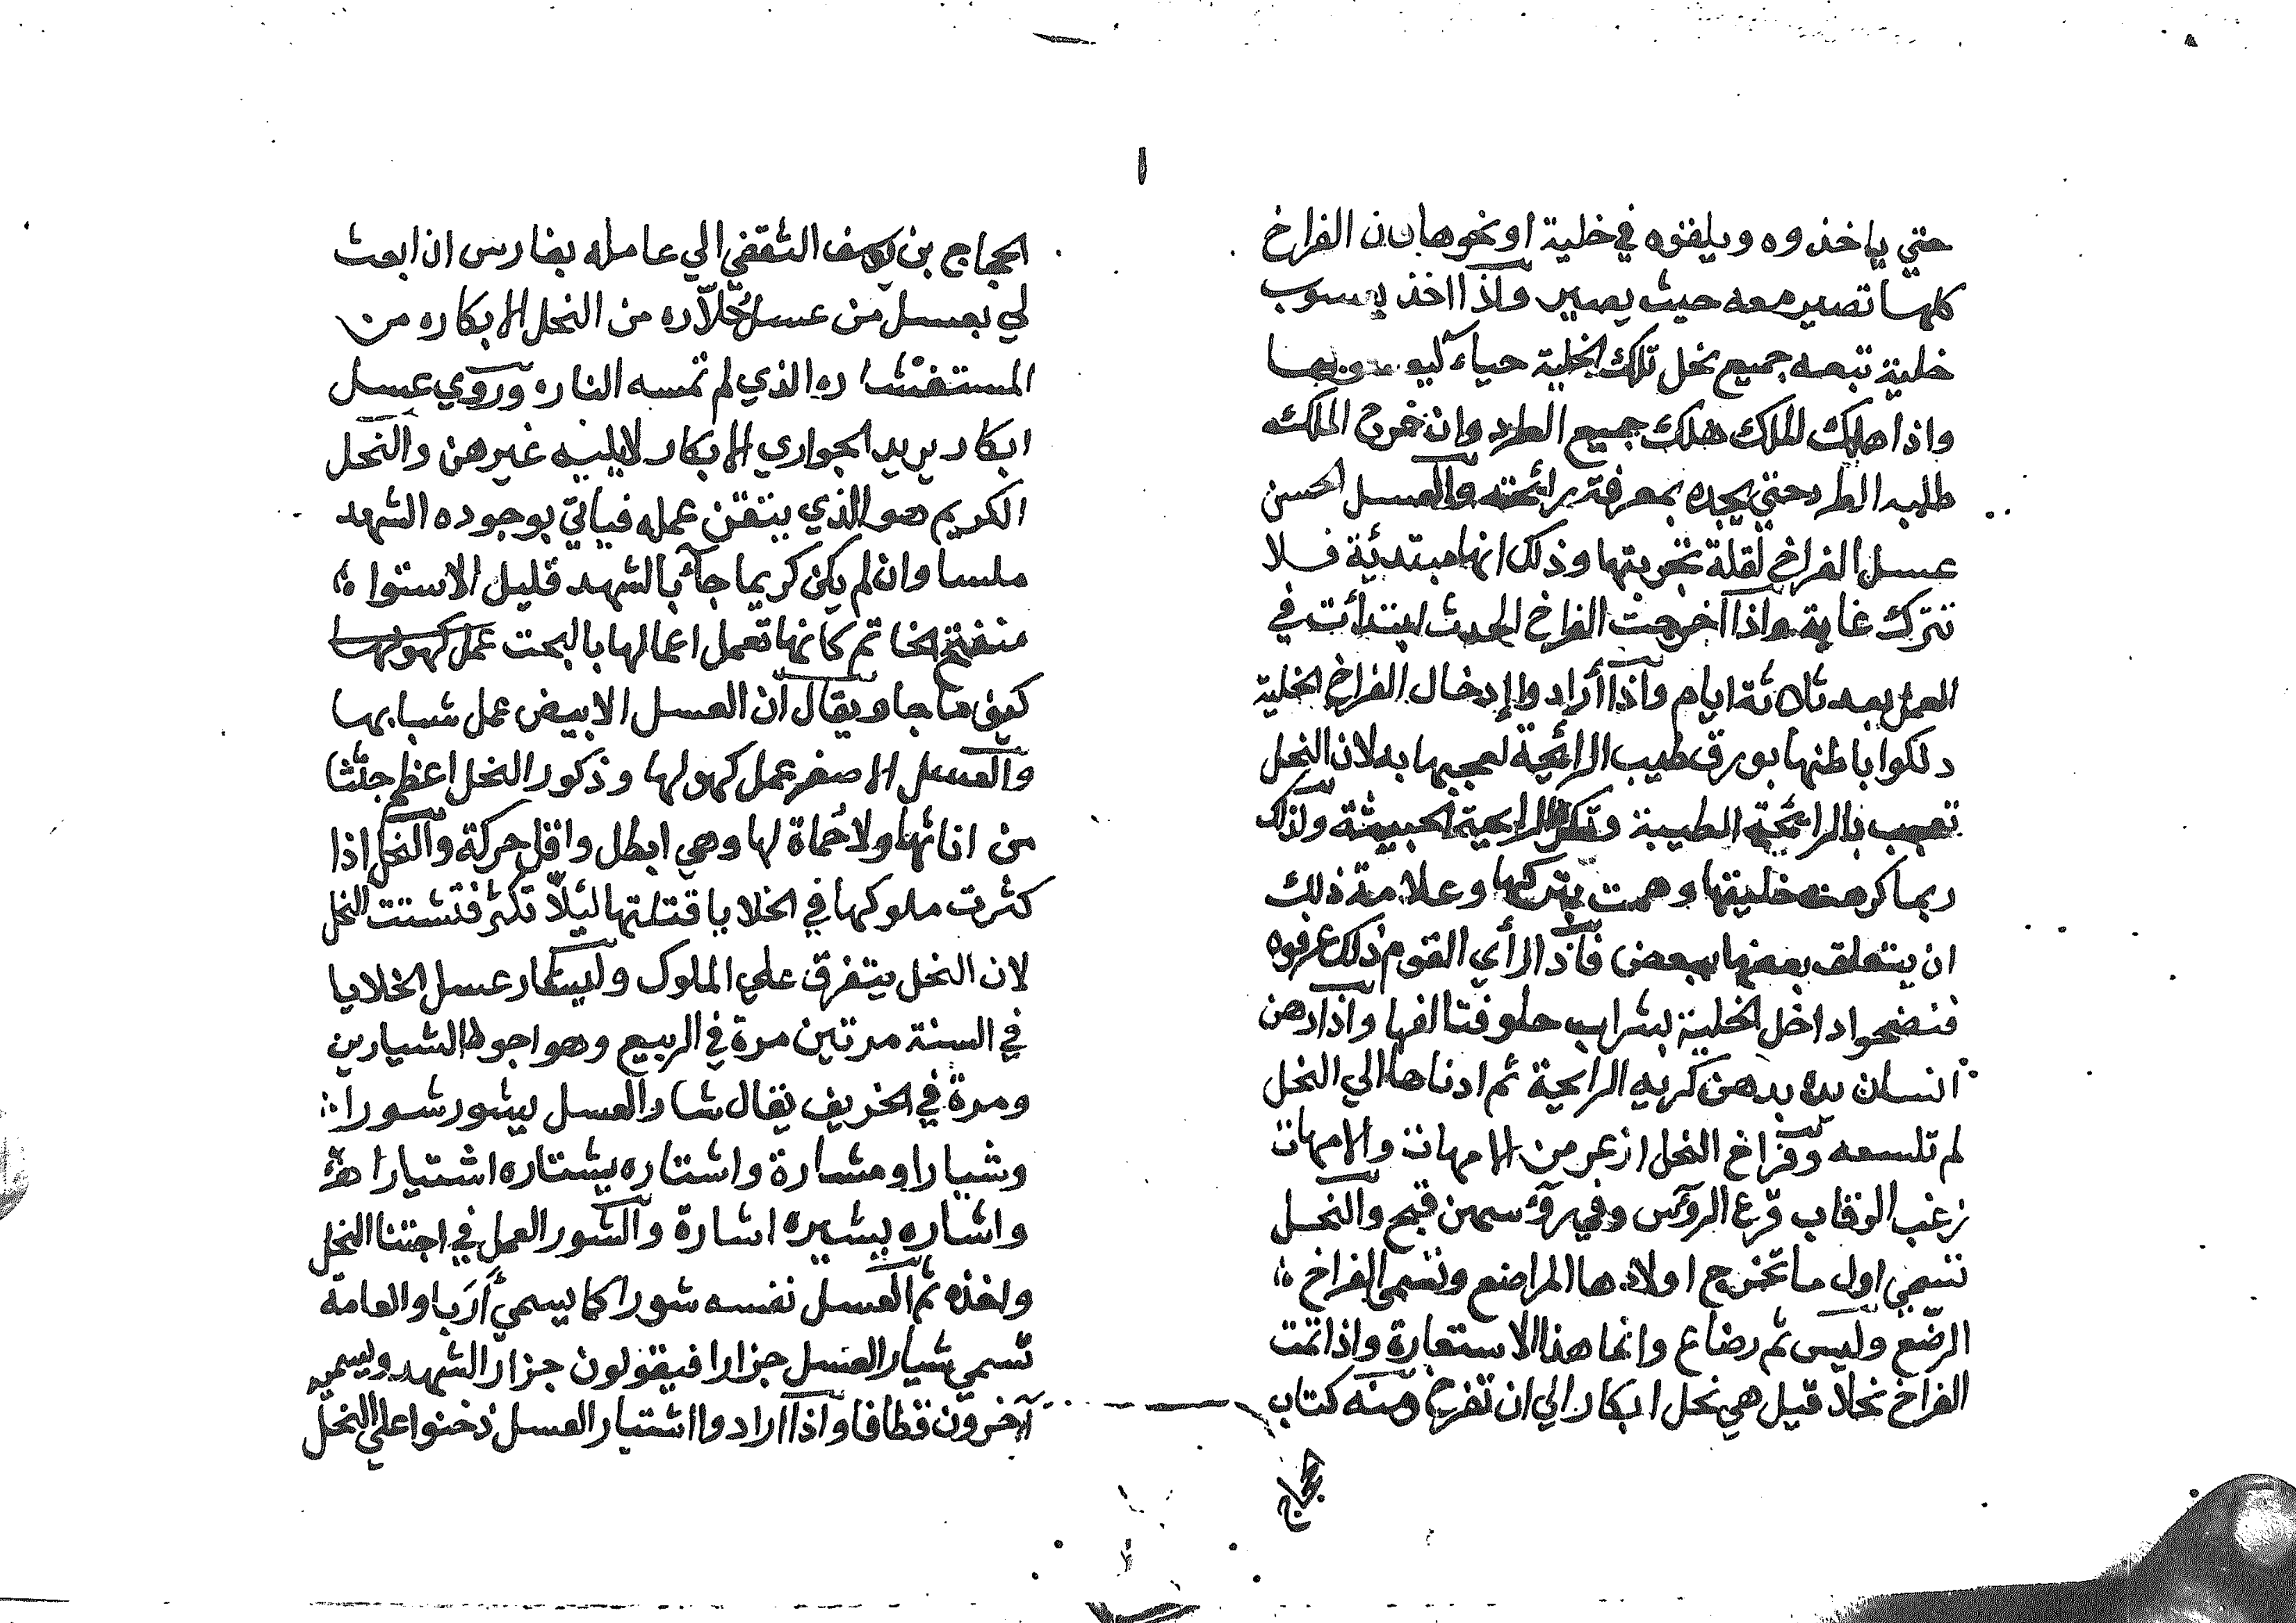 حتي ياخذوه ويلقوه في خلية او نحوها فان الفراخ
كلها تصير معه حيث يصير واذا اخذ يعسوب
خلية تبعه جميع نحل تلك الخلية حياء
واذا هلك الملك هلك جميع الطرد وان خرج الملك
طلبه الطرد حتي يجده بمعرفة برائحته والعسل احسن
عسل الفراخ لقلة تجربتها وذلك انها مبتدئة فلا
تترك غاية واذا اخرجت الفراخ الحدث ابتدأت في
العمل بعد ثلاثة ايام واذا أرادوا إدخال الفراخ الخلية
دلكوا باطنها بورق طيب الرائحة لعجبها به لان النحل
تعجب بالرائحة الطيبة وتكره الرايحة الخبيثة ولذلك
ربما كرهت خليتها وهمت بتركها وعلامة ذلك
ان يتعلق بعضها ببعض فاذا رأي القوم ذلك عرفوه
فنضحوا داخل الخلية بشراب حلو فتالفها واذا دهن
انسان يده بدهن كريه الرايحة ثم ادناها الي النحل
لم تلسعه وفراخ النحل ازعر من الامهات والامهات
زغب الرقاب قرع الرؤس وفي رؤسهن قبح والنحل
تسمي اول ما تخرج اولادها المراضع وتسمي الفراخ
الرضّع وليس ثم رضاع وانما هذا الاستعارة واذا تمت
الفراخ نحلا قيل هي نحل ابكار الي ان تفرخ ومنه كتاب
الحجاج
الحجاج بن يوسف الثقفي الي عامله بفارس ان ابعث
لي بعسل من عسل خُلّاره من النحل الابكاره من
المستفشاره الذي لم تمسه الناره وروي عسل
ابكار يريد الجواري الابكار لايليه غيرهن والنحل
الكريم هو الذي يتقن عمله فياتي بوجوده الشهد
ملسا وان لم يكن كريما جاء بالشهد قليل الاستواء
منفتح الخاتم كانها تعمل اعمالها بالبحت عمل كهولها
كيف ما جا ويقال ان العسل الابيض عمل شبابها
والعسل الاصفر عمل كهولها وذكور النحل اعظم جثثا
من اناثها ولا حُماة لها وهي ابطل واقل حركة والنحل اذا
كثرت ملوكها في الخلايا قتلتها ليئلّا تكثر فتشتت النحل
لان النحل يتفرق علي الملوك وليشتار عسل الخلايا
في السنة مرتين مرة في الربيع وهو اجود الشيارين
ومرة في الخريف يقال شار العسل يشور شورا
وشيارا ومشارة واشتاره يشتاره اشتيارا
واشاره يشيره اشارة والشور العمل في اجتنا النحل
واخذه ثم العسل نفسه شورا كما يسمي أَرَبا والعامة
تسمي شيار العسل جزارا فيقولون جزار الشهد ويسميه
آخرون قطافا واذا ارادوا اشتيار العسل دخنوا علي النحل